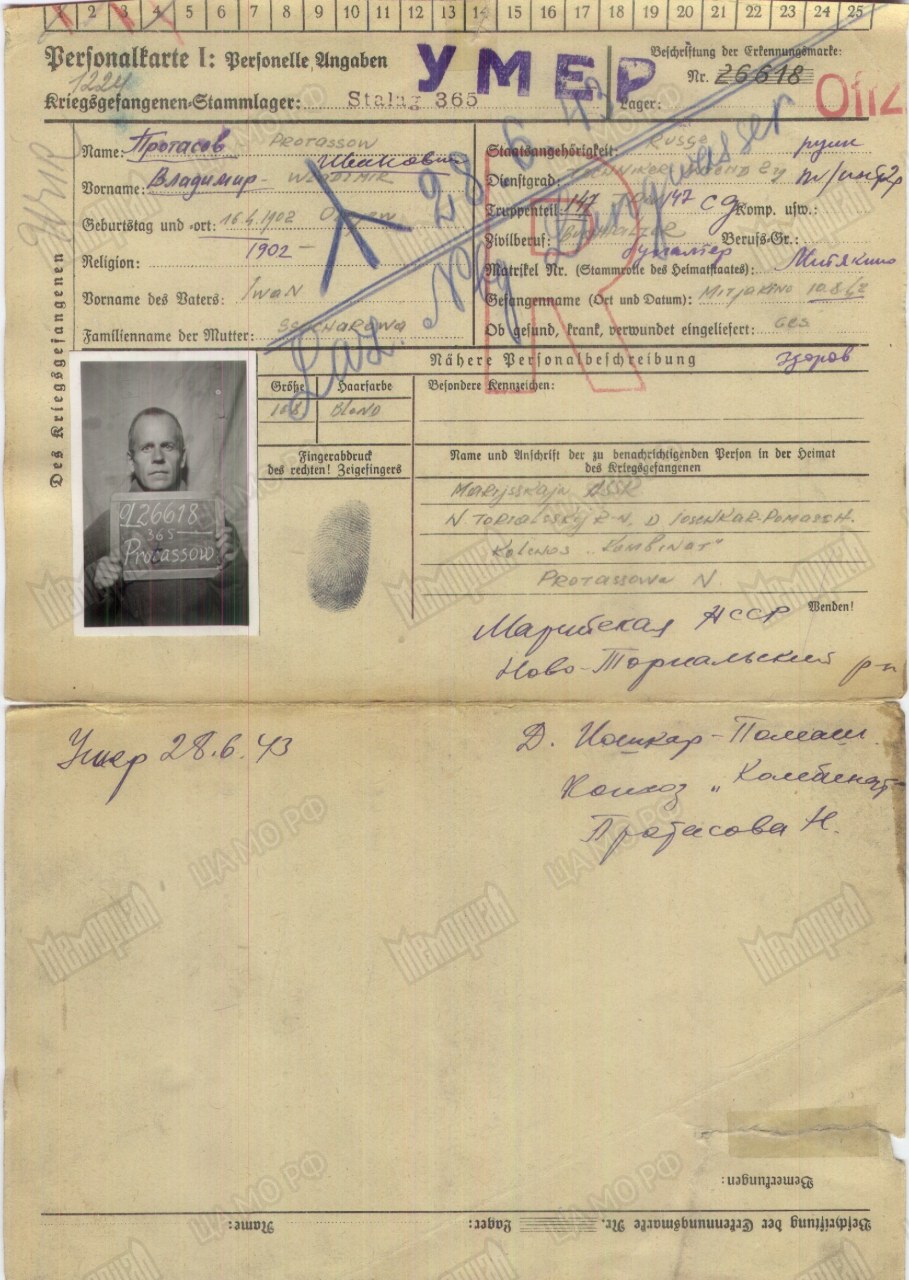 1 2 3 4 5 6 7 8 9 10 11 12 13 14 15 16 17 18 19 20 21 22 23 24 25
Personalkarte I: Personelle Angaben
УМЕР
Beschriftung der Erkennungsmarke:
1224
Nr. 26618
Kriegsgefangenen-Stammlager: Stalag 365
Lager:
Offz
Des Kriegsgefangenen
Name: Протасов PROTASSOW
Иванович
Vorname: Владимир WLADIMIR
Geburtstag und -ort: 16.4.1902
1902
Religion:
Vorname des Vaters: IwaN
Familienname der Mutter:
Staatsangehörigkeit: RUSSE
Dienstgrad: TECHNIKER
т/инт 2р
Truppenteil: 147 147 сд Komp. usw.:
Zivilberuf: Berufs-Gr.:
бухгалтер
Matrikel Nr. (Stammrolle des Heimatstaates): Митякино
Gefangenname (Ort und Datum): MITJAKINO 10.8.42
Ob gesund, krank, verwundet eingeliefert: GES
здоров
R
28 6 43
Laz. Nbg Langwasser
Nähere Personalbeschreibung
Größe Haarfarbe
168 BLOND
Besondere Kennzeichen:
Fingerabdruck
des rechten! Zeigefingers
Name und Anschrift der zu benachrichtigenden Person in der Heimat
des Kriegsgefangenen
MARIJSSKAJA ASSR
N TORIALSSKIJ R-N, D JOSCHKAR-POMASCH.
KOLCHOS „KOMBINAT"
PROTASSOWA N.
Wenden!
926618
365
Protassow
Марийская АССР
Ново-Торъальский р-н
Умер 28.6.43
Д. Йошкар-Памаш.
Колхоз „Комбинат"
Протасова Н.
Bemerkungen:
Beschriftung der Erkennungsmarke Nr. Lager: Name:
Мемориал
ЦАМО РФ